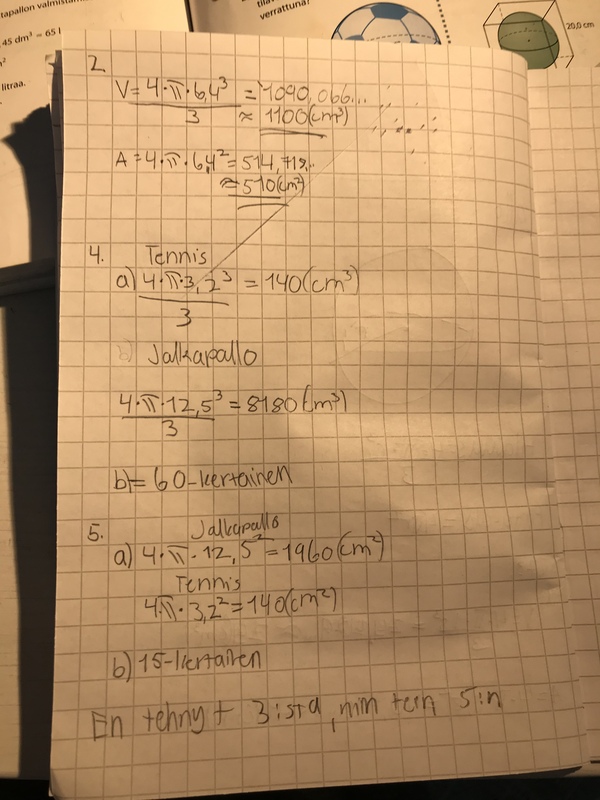 tapallon valmistam
45 dm³ = 65 l
litraa.
verrattuna?
20,0 cm
2.
V = 4·π·6,4³ / 3 = 1090,066...
≈ 1100(cm³)
A = 4·π·6,4² = 514,718..
≈ 510(cm²)
4. Tennis
a) 4·π·3,2³ / 3 = 140(cm³)
b) Jalkapallo
4·π·12,5³ / 3 = 8180(cm³)
b) = 60-kertainen
5. Jalkapallo
a) 4·π·12,5² = 1960(cm²)
Tennis
4π·3,2² = 140(cm²)
b) 15-kertainen
En tehnyt 3:sta, niin tein 5:n